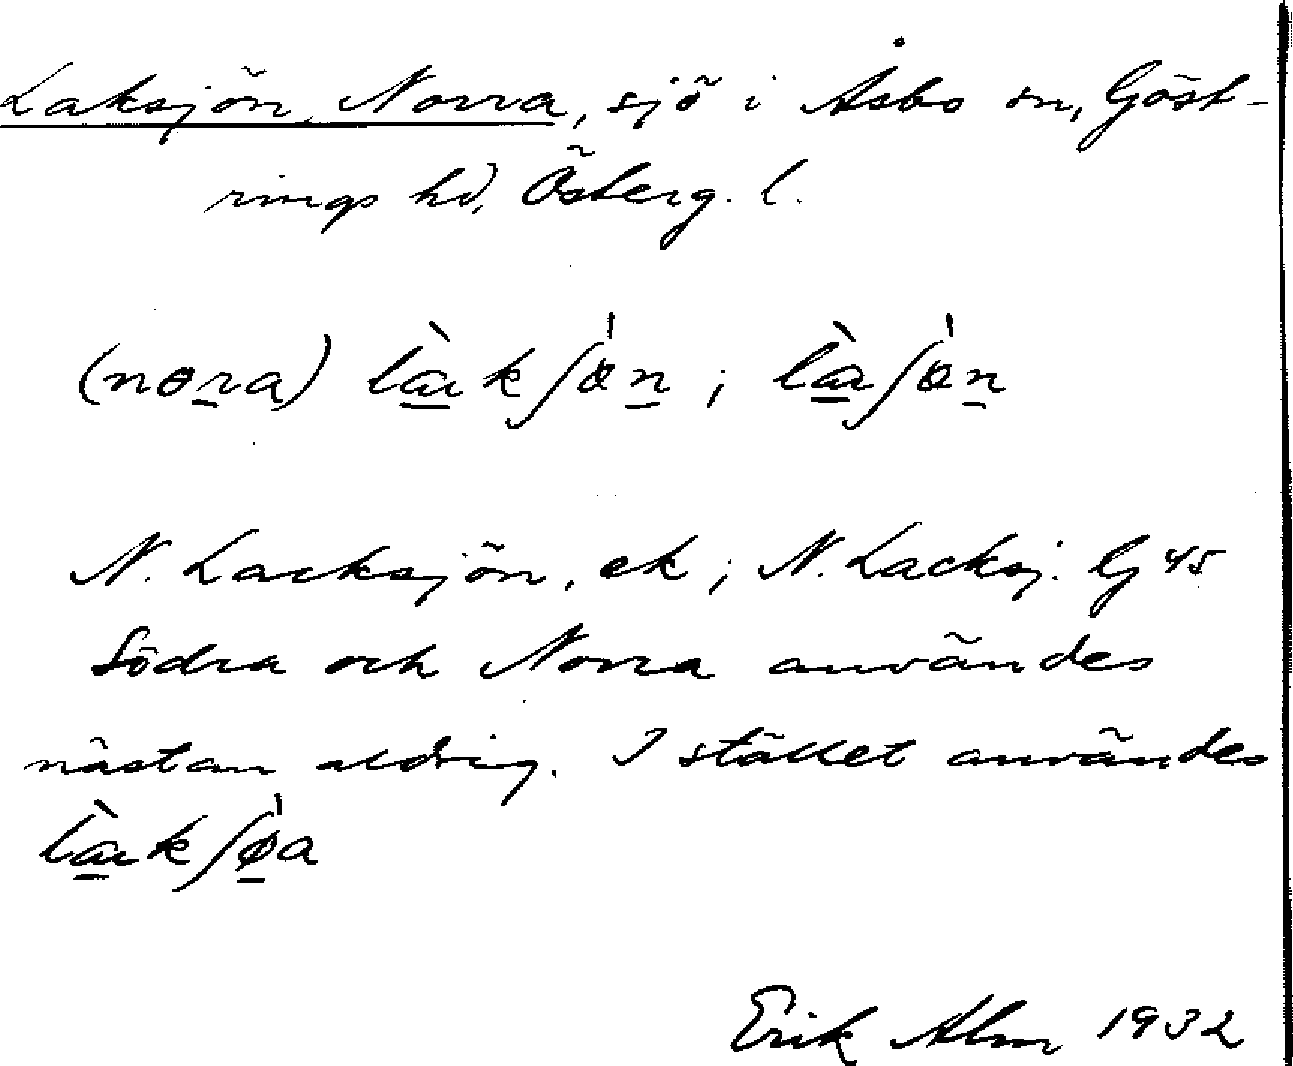 Laksjön, Norra, sjö i Åsbo sn, Göst-
rings hd, Österg. l.
(nora) là̠kʃö̍n ; là̠ʃö̍n
N. Lacksjön, ek ; N. Lacksj. G 45
Södra och Norra användes
nästan aldrig. I stället användes
là̠kʃø̠̍a
Erik Alm 1932